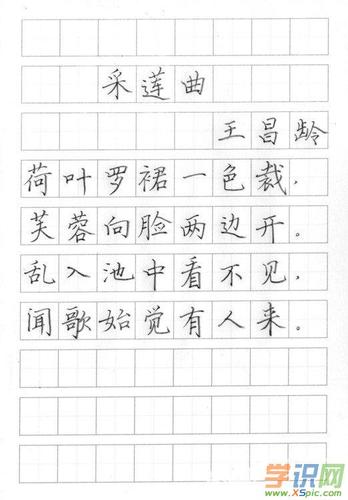 采莲曲
王昌龄
荷叶罗裙一色裁，
芙蓉向脸两边开。
乱入池中看不见，
闻歌始觉有人来。
学识网
www.XSpic.com